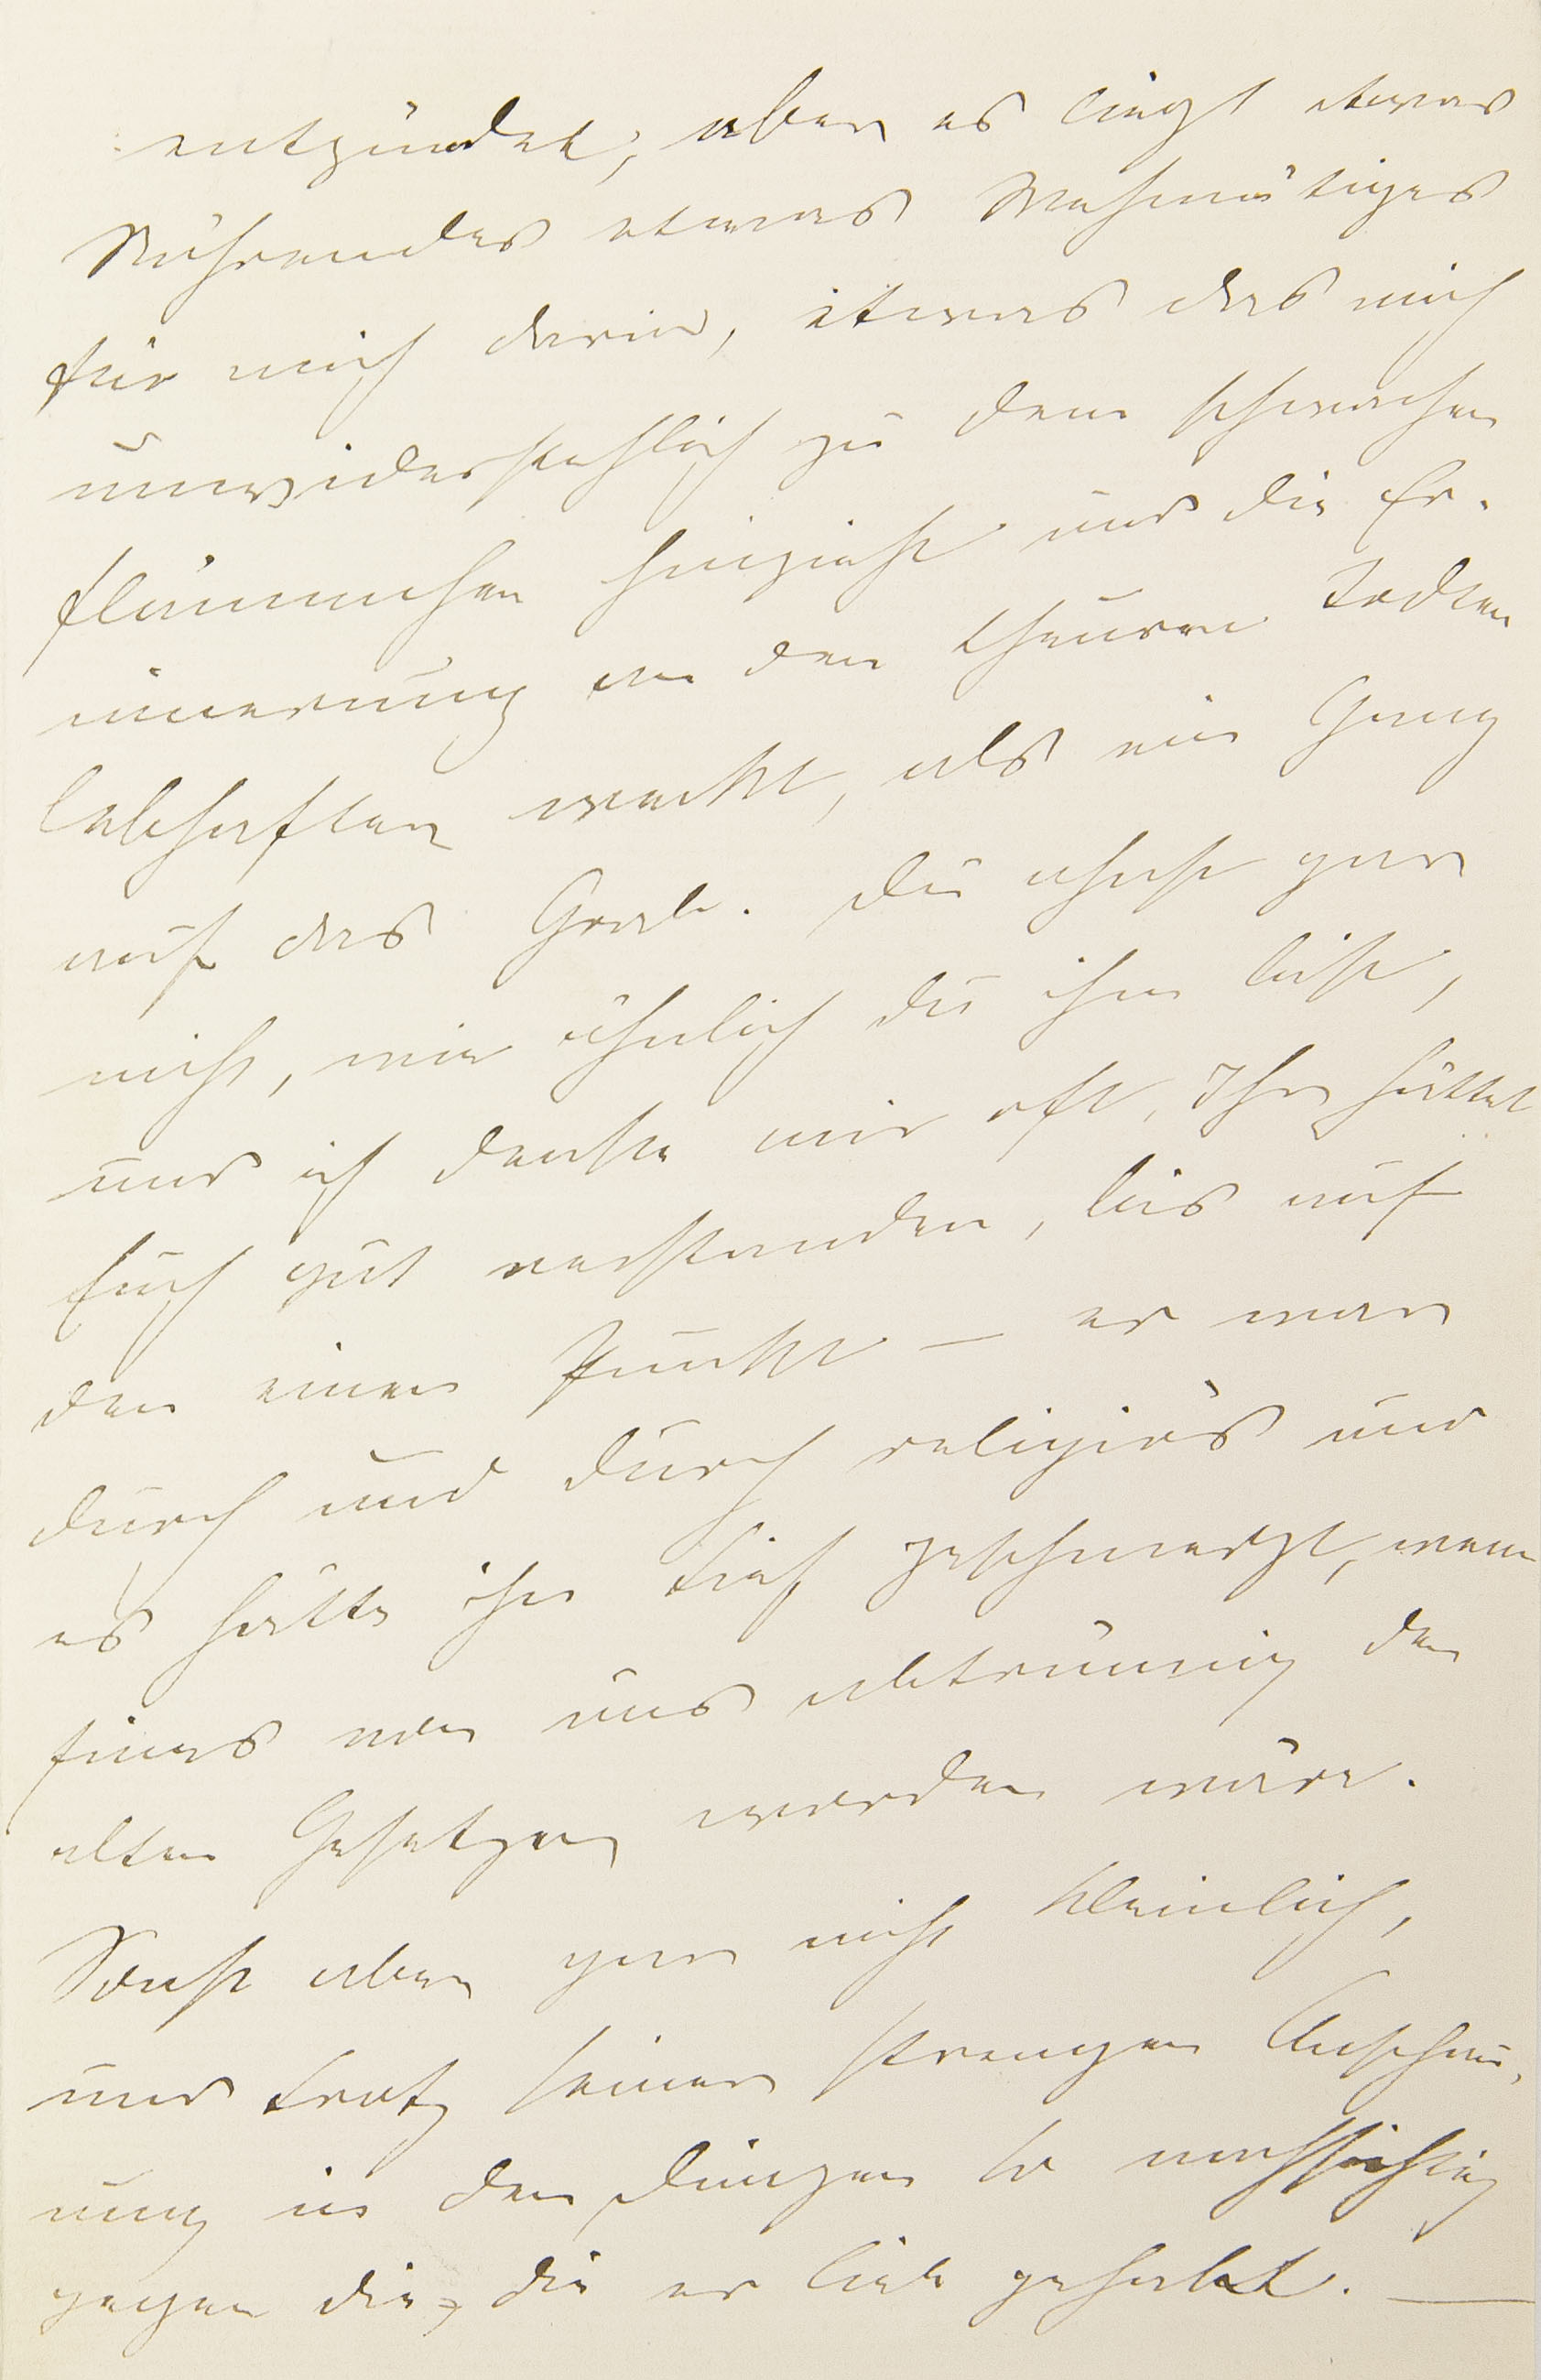 entzündet, aber es liegt etwas
Rührendes etwas Wehmütiges
für mich darin, etwas das mich
unwiderstehlich zu dem schwachen
Flämmchen hinzieht und die Er-
innerung an den theuren Todten
lebhafter weckt, als ein Gang
auf das Grab. Du ahnst gar
nicht, wie ähnlich du ihm bist,
und ich denke mir oft, Ihr hättet
Euch gut verstanden, bis auf
den einen Punkt — er war
durch und durch religiös und
es hätte ihn tief geschmerzt, wenn
Eines von uns abtrünnig den
alten Gesetzen worden wäre.
Sonst aber gar nicht kleinlich,
und trotz seiner strengen Anschau-
ung in den Dingen so nachsichtig
gegen die, die er lieb gehabt. —